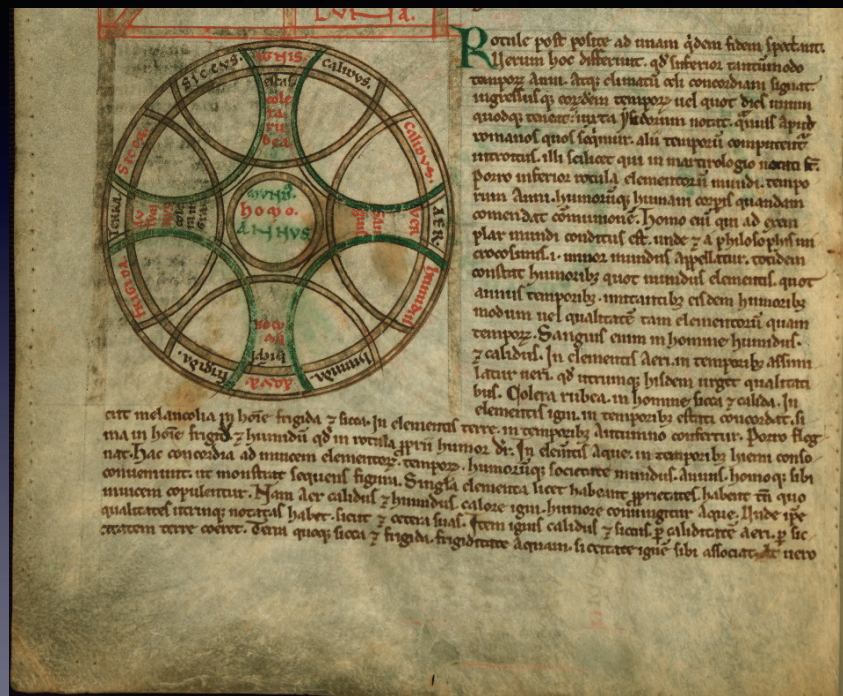 LVNA.
IGNIS.
CALIDVS.
SICCVS.
Estas
cole
ra
ru
bea.
Sicca.
CALIDVS.
TERRA
MVNDVS
homo.
ANNVS
VER
San
guis
AER.
frigida.
humidus
hiems
AQVA.
frigida.
humida.
Rotule post posite ad unam qdem fidem spectant.
Verum hoc differunt. qd inferior tantummodo
tempoꝝ anni. Atq; climatū celi concordiam signat.
ingressusq; eoꝝdem tempoꝝ uel quot dies unum
quodq; teneat. iuxta ysidorum notat. q̄muis apud
romanos quos seqimur. alii temporū computent̄
introitus. illi scilicet qui in martirologio notati st̄.
Porro inferior rotula elementorū mundi. tempo
rum Anni. humorūq; humani corpis quandam
comendat cōmunionē. Homo eni qui ad exem
plar mundi conditus est. unde ⁊ a philosophis mi
crocosmus .i. minor mundus appellatur. totidem
constat humorib; quot mundus elementis. quot
annus temporib;. imitantib; eisdem humorib;
modum uel qualitatē tam elementorū quam
tempoꝝ. Sanguis enim in homine humidus.
⁊ calidus. In elementis Aeri. in temporib; assimi
latur ueri. qd utrunq; hisdem uiget qualitati
bus. Colera rubea. in homine sicca ⁊ calida. In
elementis igni. in temporib; estati concordat. si
cut melancolia in hoīe frigida ⁊ sicca. In elementis terre. in temporib; Autumno confertur. Porro fleg
ma in hoīe frigidū ⁊ humidū qd in rotula ꝓprii humor dr̄. In elem̄tis Aque. in temporib; hiemi conso
nat. Hac concordia ad inuicem elementoꝝ. tempoꝝ. humorūq; societate mundus. Annus. homoq; sibi
conueniunt. ut monstrat sequens figura. Singula elementa licet habeant ꝓprietates. habent tn̄ quo
inuicem copulentur. Nam Aer calidus ⁊ humidus. calore igni. humore coniungitur Aque. Unde ipse
qualitates utrinq; notatas habet. sicut ⁊ cetera suas. Item ignis calidus ⁊ siccus. ꝑ caliditatē aeri. ꝑ sic
citatem terre coeret. Terra quoq; sicca ⁊ frigida. frigiditate Aquam. siccitate ignē sibi associat. At uero